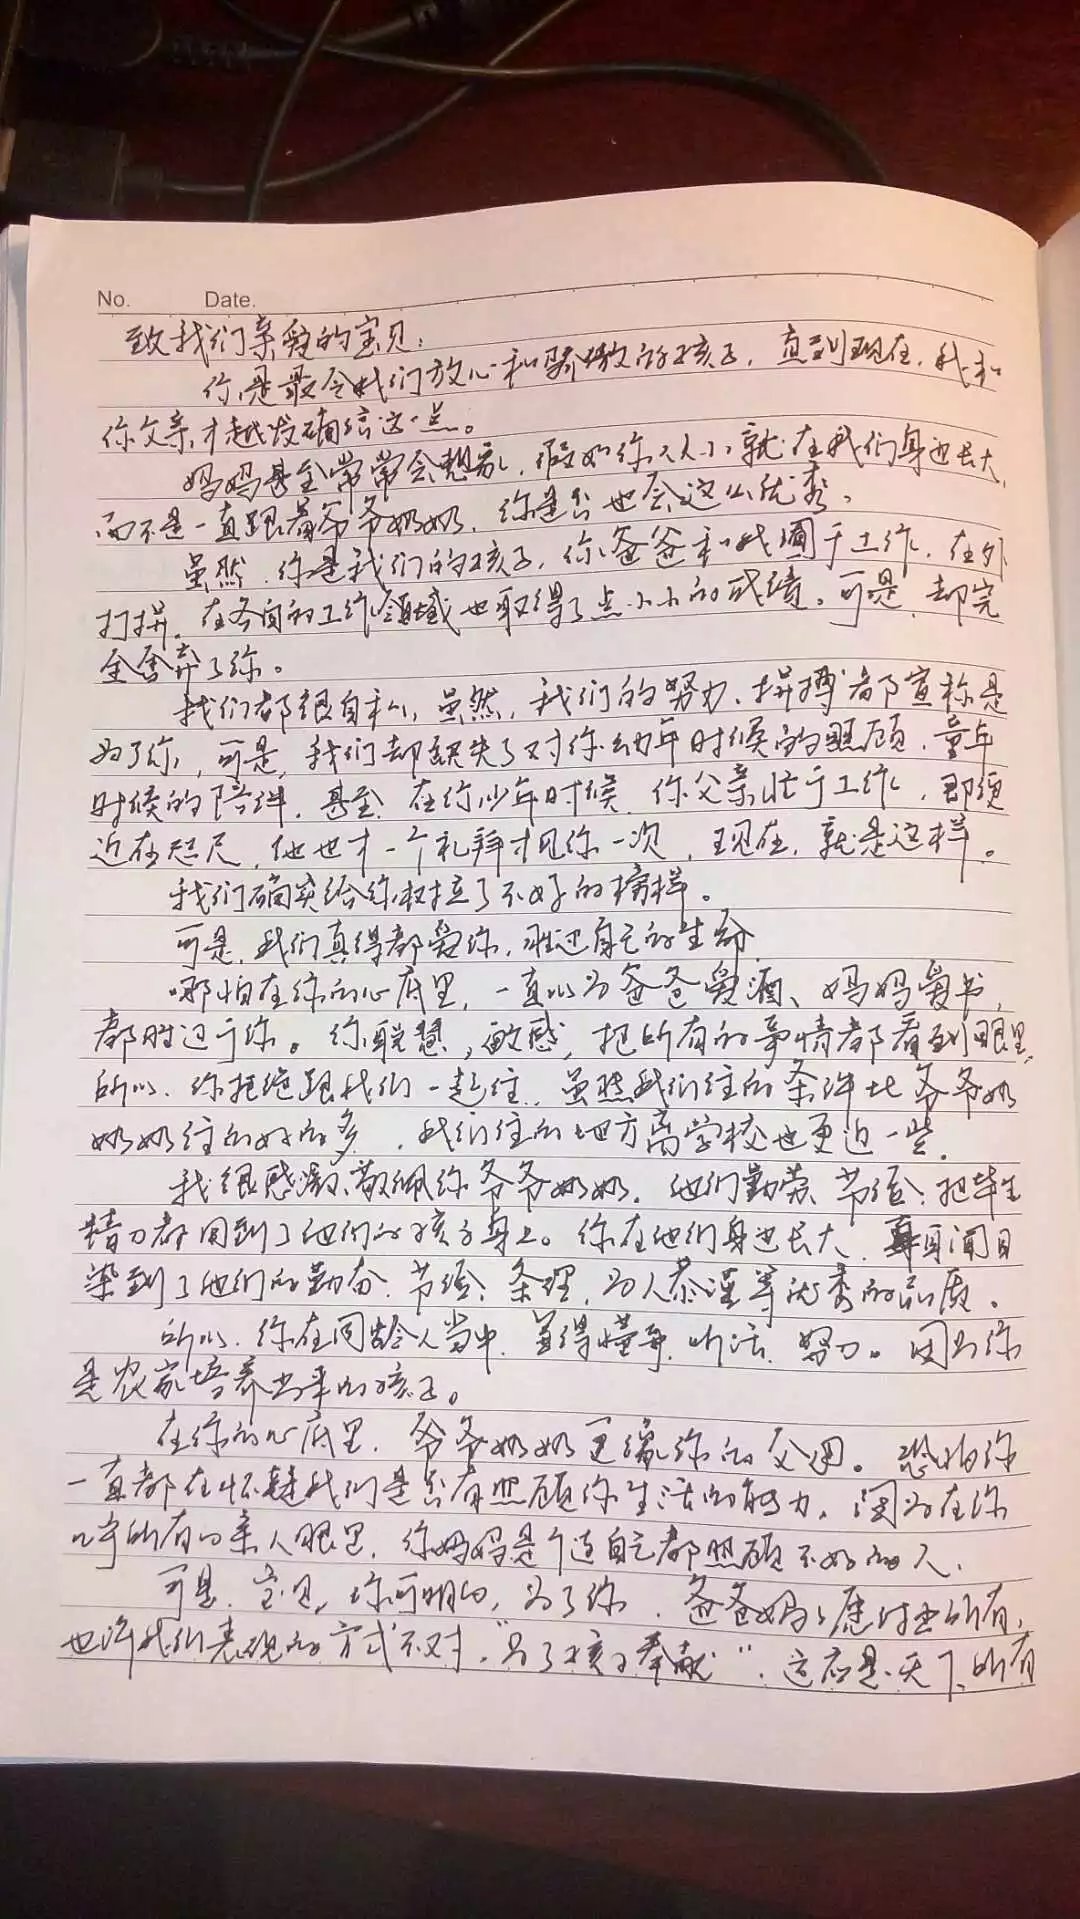 No. Date.
致我们亲爱的宝贝:
你是最令我们放心和骄傲的孩子,直到现在,我和
你父亲才越发确信这一点。
妈妈甚至常常会想象,假如你从小就在我们身边长大,
而不是一直跟着爷爷奶奶,你是否也会这么优秀。
虽然,你是我们的孩子,你爸爸和我囿于工作,在外
打拼,在各自的工作领域也取得了点小小的成绩。可是,却完
全舍弃了你。
我们都很自私,虽然,我们的努力、拼搏都宣称是
为了你,可是,我们却缺失了对你幼年时候的照顾,童年
时候的陪伴,甚至,在你少年时候,你父亲忙于工作,即便
近在咫尺,他也才一个礼拜才见你一次,现在,就是这样。
我们确实给你树立了不好的榜样。
可是,我们真得都爱你,胜过自己的生命
哪怕在你的心底里,一直以为爸爸爱酒、妈妈爱书,
都胜过于你。你聪慧,敏感,把所有的事情都看到眼里,
所以,你拒绝跟我们一起住,虽然我们住的条件比爷爷奶
奶奶住的好的多,我们住的地方离学校也更近一些。
我很感激、敬佩你爷爷奶奶,他们勤劳、节俭、把毕生
精力都用到了他们的孩子身上。你在他们身边长大,耳闻目
染到了他们的勤奋、节俭、条理,为人恭谨等优秀的品质。
所以,你在同龄人当中,算得懂事、听话、努力。因为你
是农家培养出来的孩子。
在你的心底里,爷爷奶奶更像你的父母。恐怕你
一直都在怀疑我们是否有照顾你生活的能力,因为在你
几乎所有的亲人眼里,你妈妈是个连自己都照顾不好的人。
可是,宝贝,你可明白,为了你,爸爸妈妈愿付出所有,
也许我们表现的方式不对,"为了孩子奉献",这应是天下所有